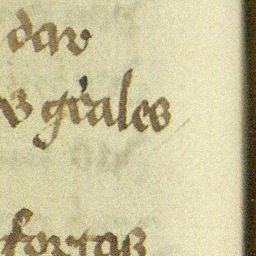 dar
s grales
fortas